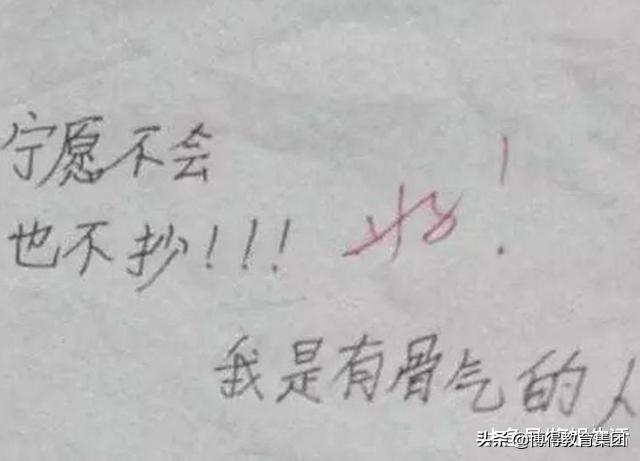 宁愿不会
也不抄!!! 好!
我是有骨气的人
头条@博得教育集团